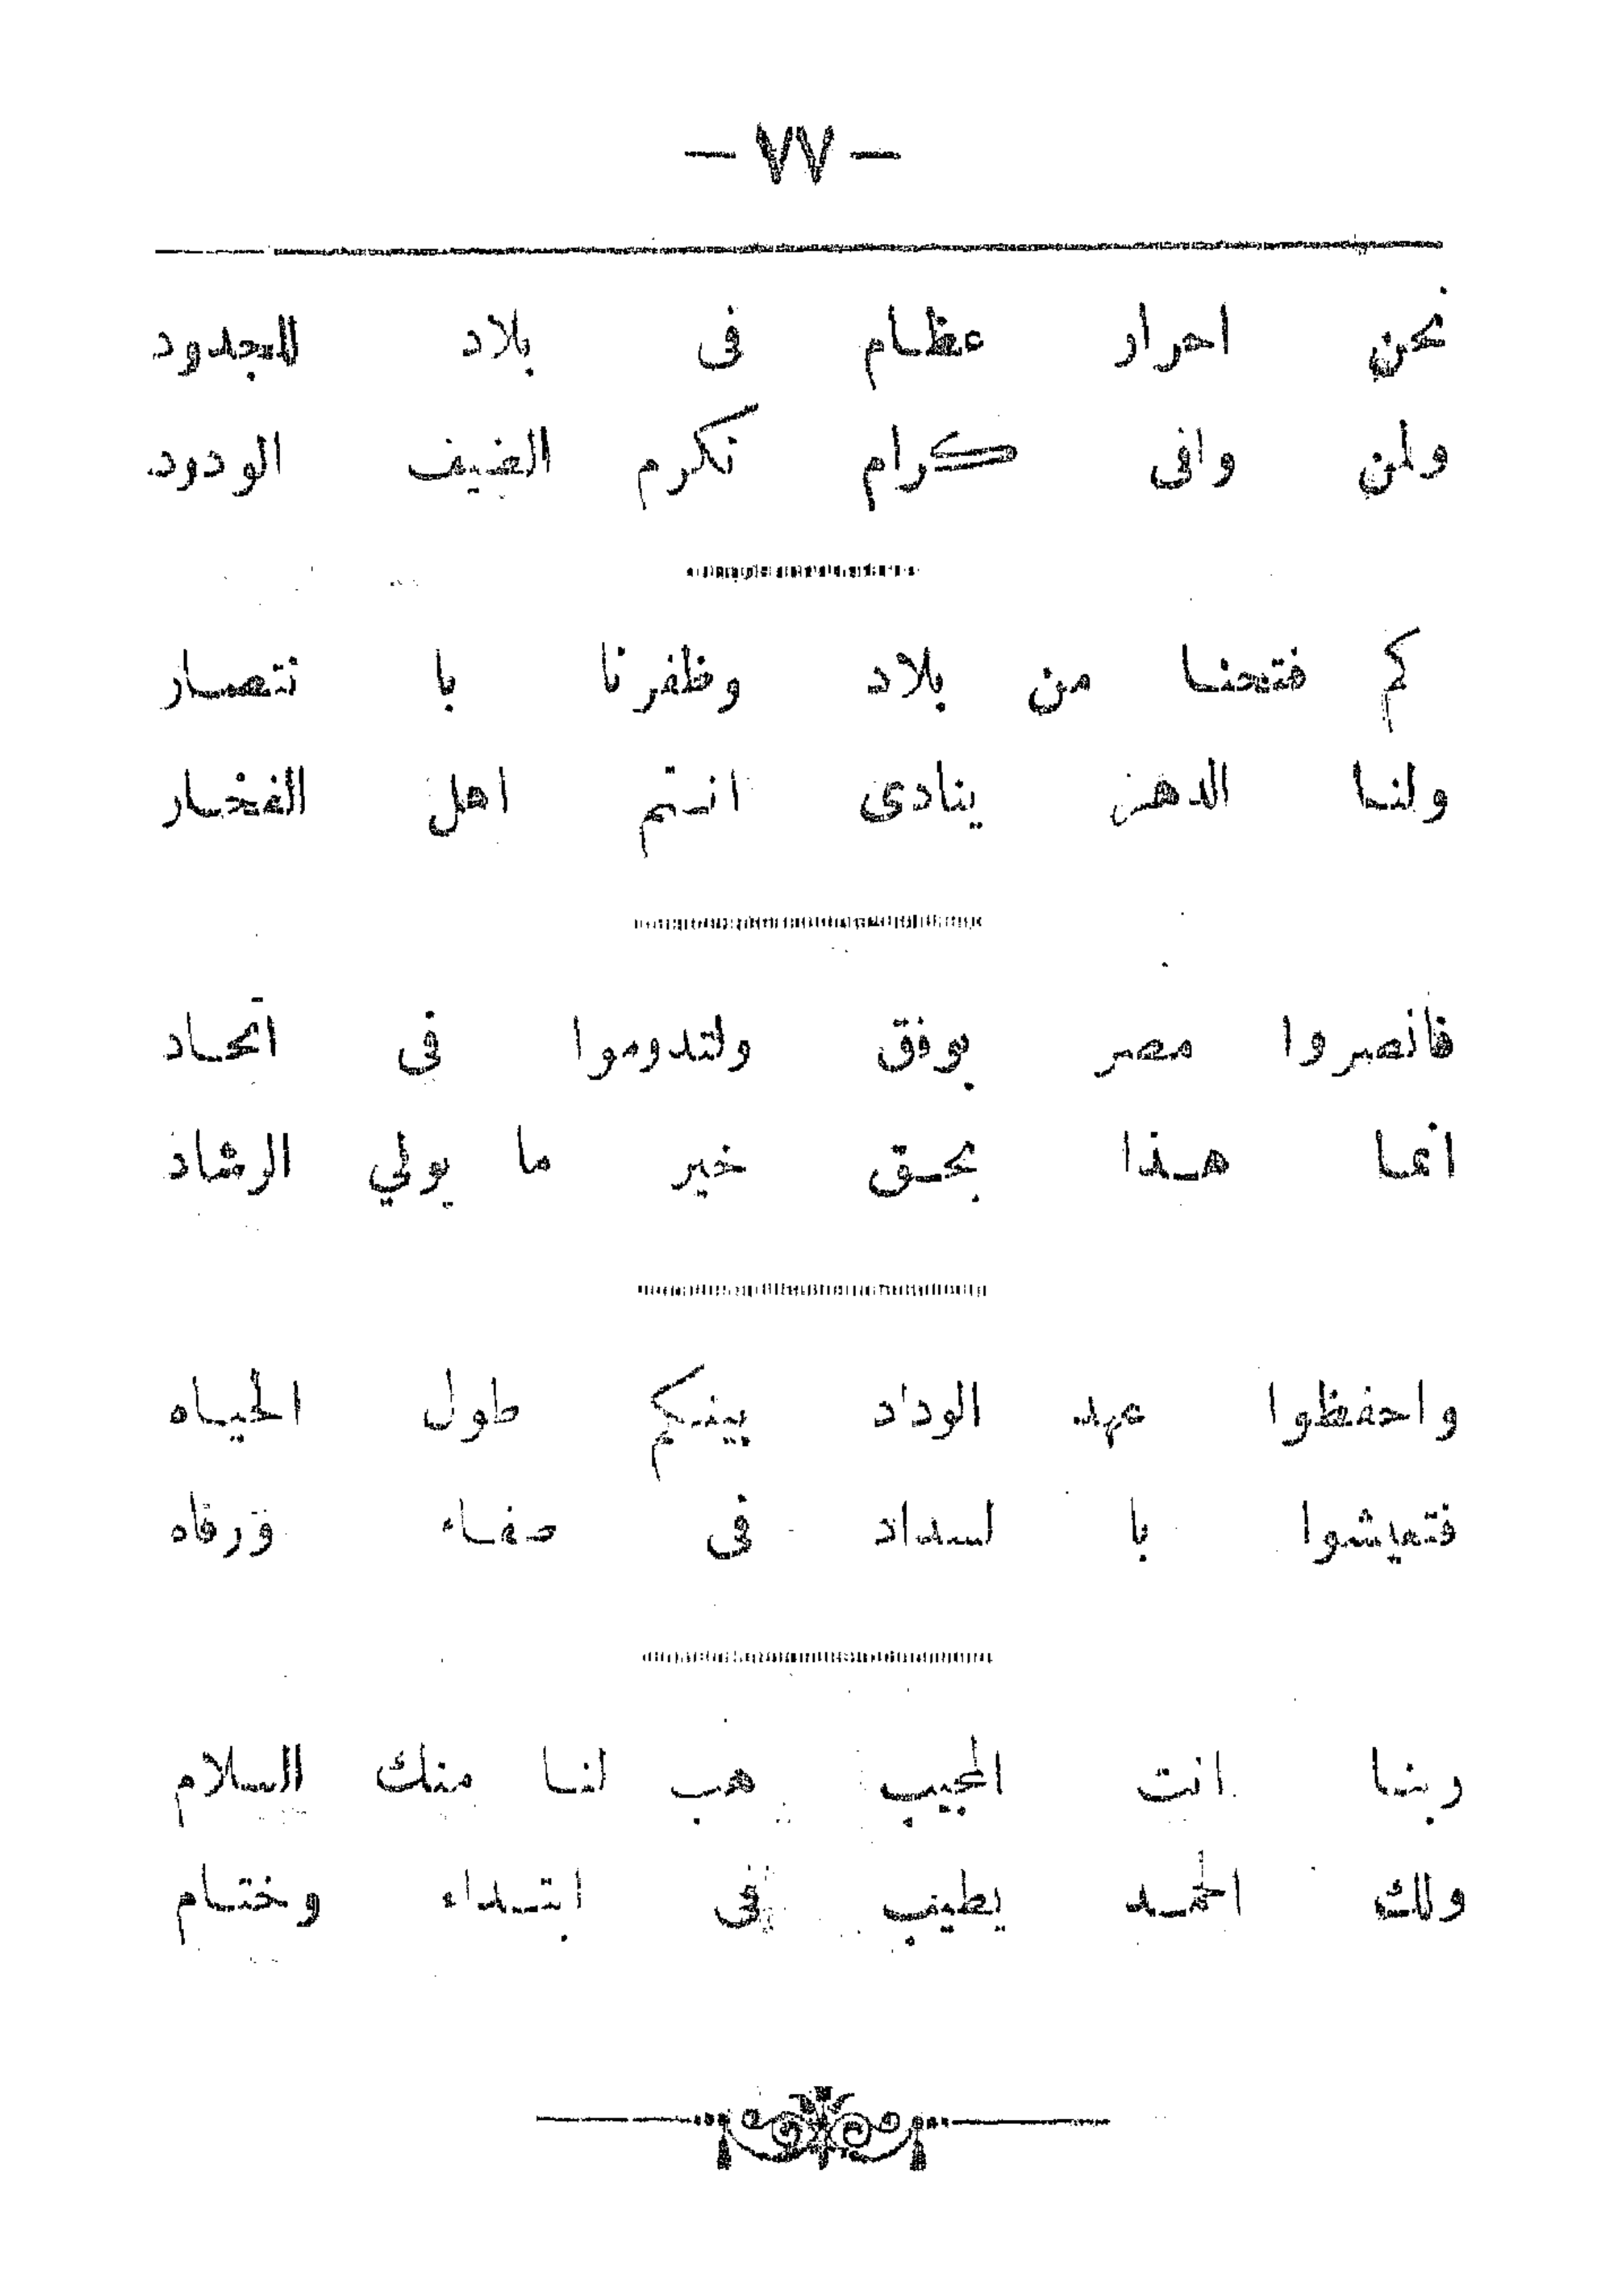 — ٧٧ —
نحن احرار عظام فى بلاد للجدود
ولمن وافى كرام نكرم الضيف الودود
كم فتحنا من بلاد وظفرنا با نتصار
ولنا الدهر ينادى انتم اهل الفخار
فانصروا مصر بوفق ولتدوموا فى اتحاد
انما هذا بحق خير ما يولي الرشاد
واحفظوا عهد الوداد بينكم طول الحياه
فتعيشوا با لسداد فى صفاء ورفاه
ربنا انت المجيب هب لنا منك السلام
ولك الحمد يطيب فى ابتداء وختام